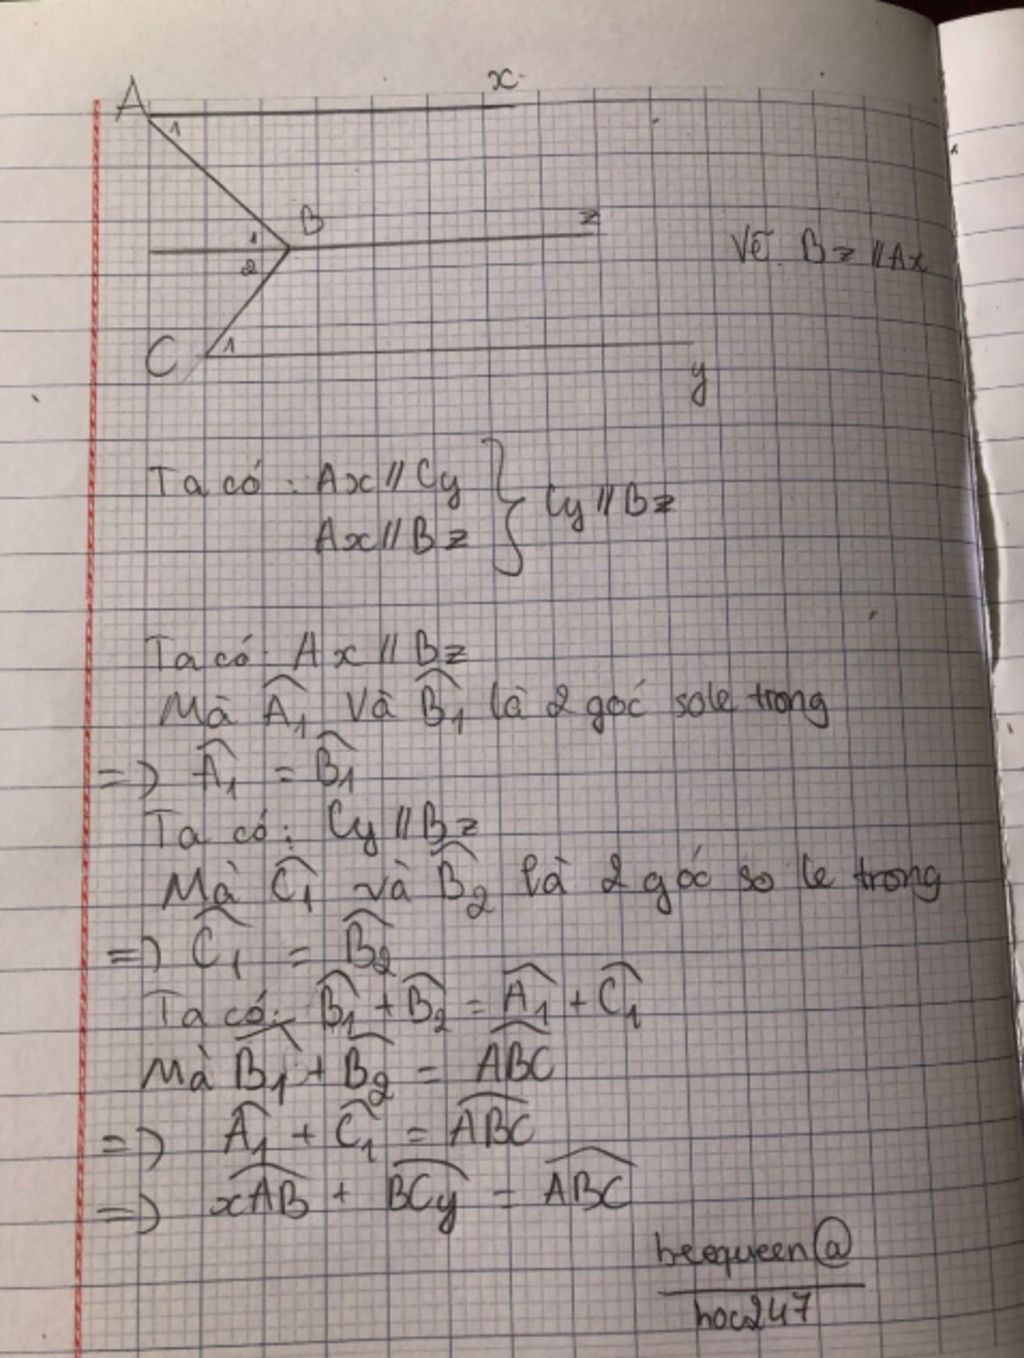 A
x
1
B
z
1
2
Vẽ Bz // Ax
C
1
y
Ta có : Ax // Cy
Ax // Bz
} Cy // Bz
Ta có : Ax // Bz
Mà Â₁ và B̂₁ là 2 góc sole trong
=) Â₁ = B̂₁
Ta có : Cy // Bz
Mà Ĉ₁ và B̂₂ là 2 góc so le trong
=) Ĉ₁ = B̂₂
Ta có : B̂₁ + B̂₂ = Â₁ + Ĉ₁
Mà B̂₁ + B̂₂ = \widehat{ABC}
=) Â₁ + Ĉ₁ = \widehat{ABC}
=) \widehat{xAB} + \widehat{BCy} = \widehat{ABC}
beequeen@
hoc247